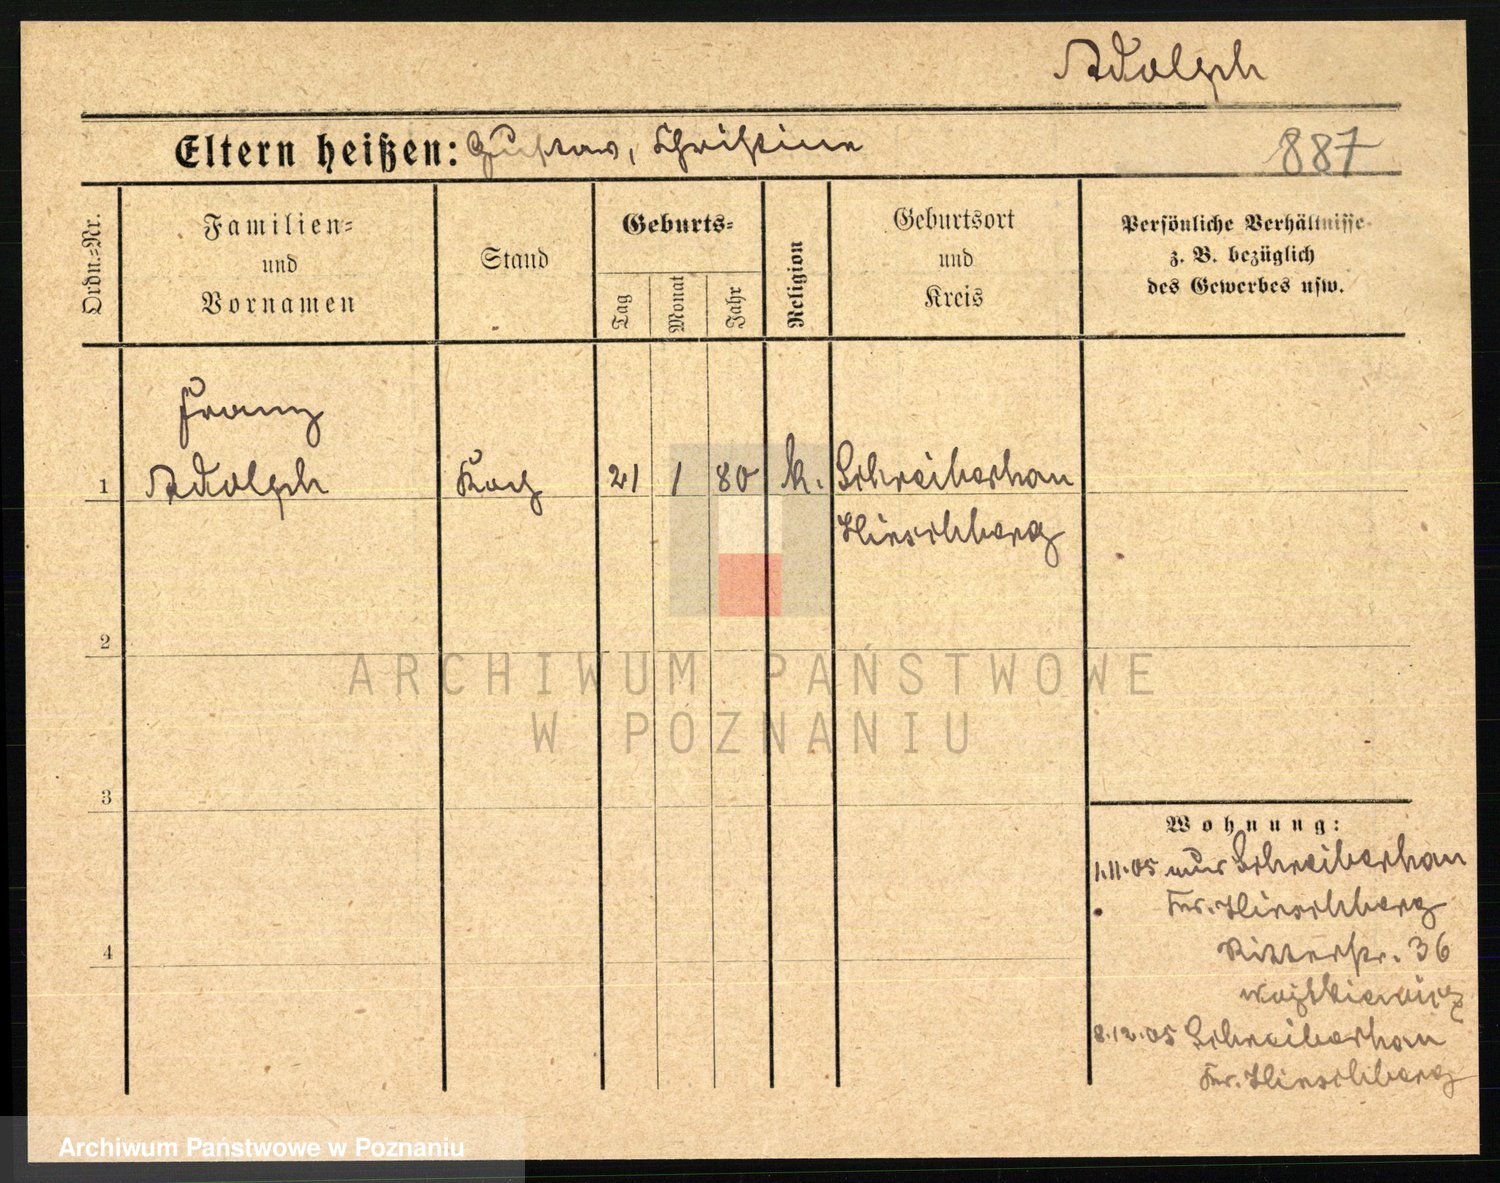 Adolph
Eltern heißen: Gustav, Christine
887
Ordn.-Nr.
Familien-
und
Vornamen
Stand
Geburts-
Tag
Monat
Jahr
Religion
Geburtsort
und
Kreis
Persönliche Verhältnisse
z. B. bezüglich
des Gewerbes usw.
Franz
1 Adolph Koch 21 1 80 k. Schreiberhau
Hirschberg
2
3
4
Wohnung:
1.11.05 aus Schreiberhau
Krs. Hirschberg
Ritterstr. 36
Woytkiewicz
8.12.05 Schreiberhau
Krs. Hirschberg
ARCHIWUM PAŃSTWOWE
W POZNANIU
Archiwum Państwowe w Poznaniu